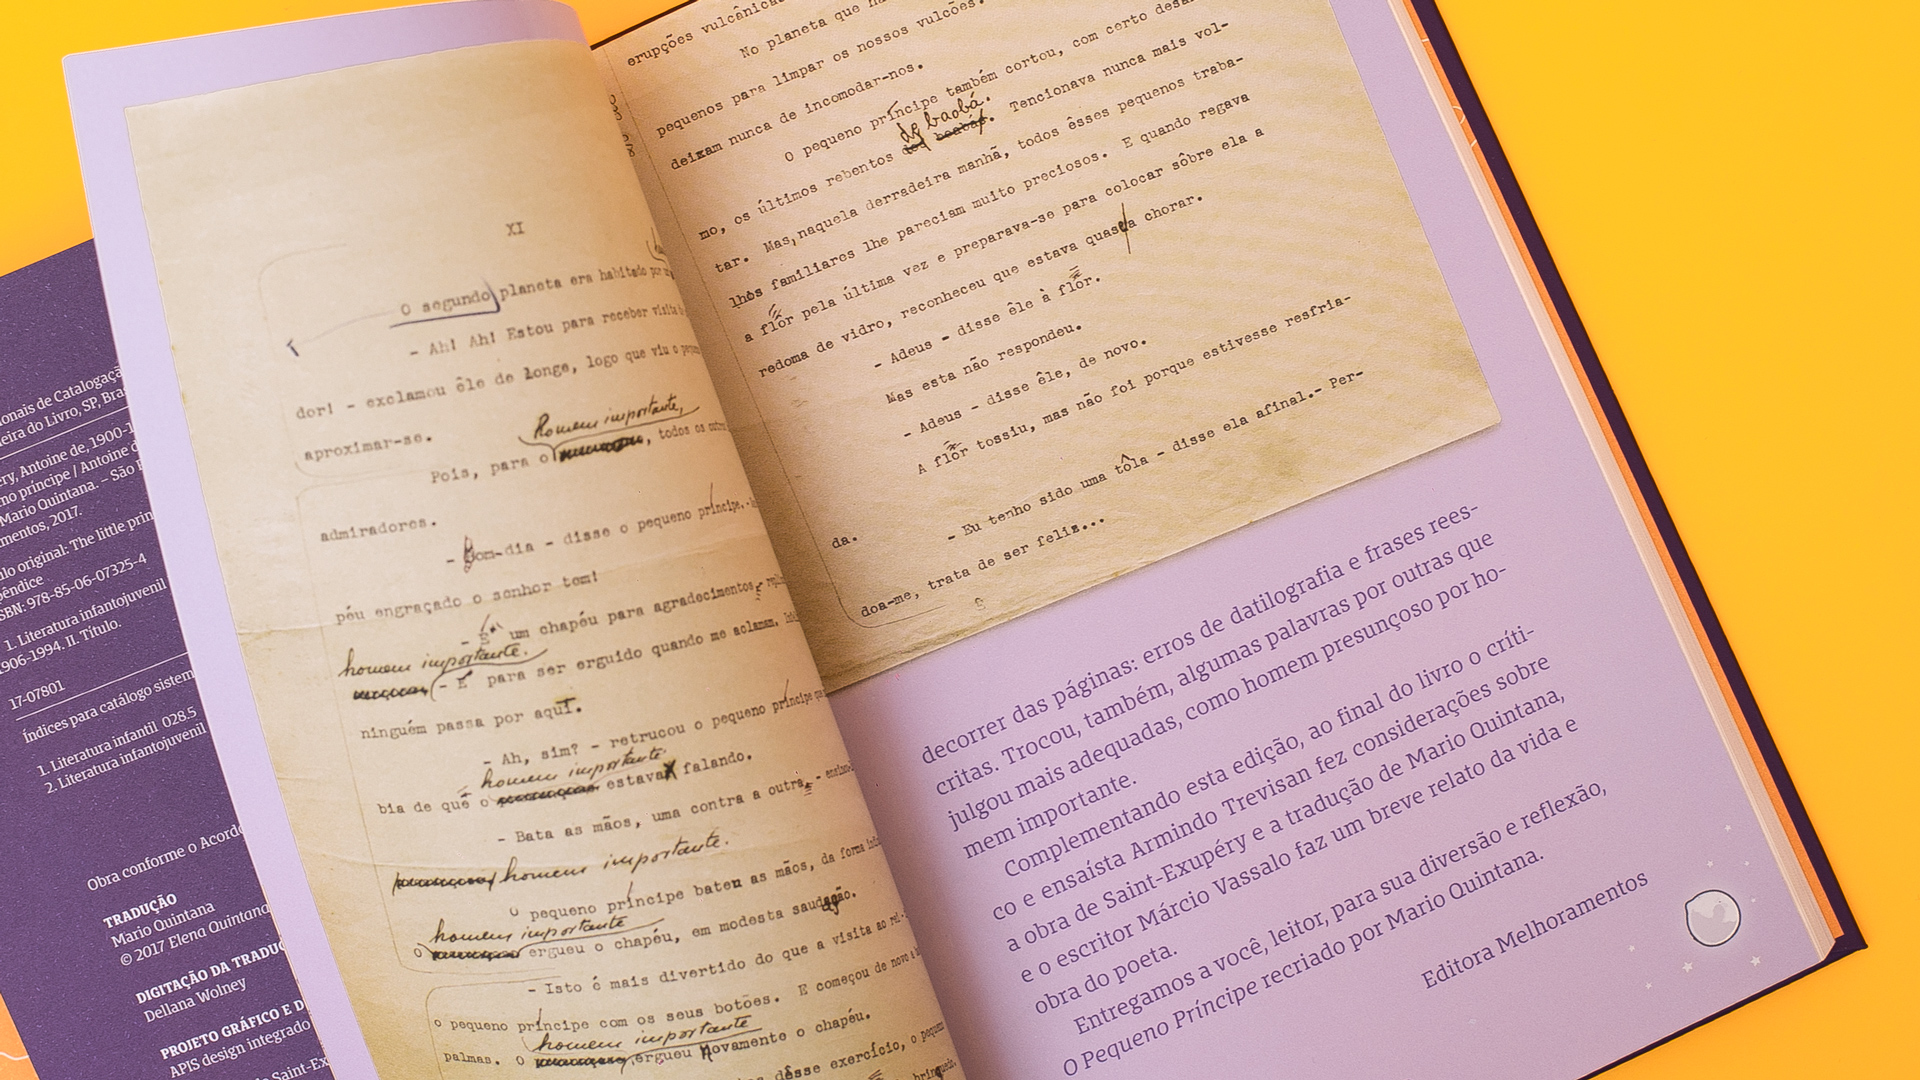 onais de Catalogaçã
eira do Livro, SP, Bra
ry, Antoine de, 1900-1
no príncipe / Antoine d
Mario Quintana. – São P
mentos, 2017.
ulo original: The little prin
pêndice
SBN: 978-85-06-07325-4
1. Literatura infantojuvenil
1906-1994. II. Título.
17-07801
Índices para catálogo sistem
1. Literatura infantil 028.5
2. Literatura infantojuvenil
Obra conforme o Acordo
TRADUÇÃO
Mario Quintana
© 2017 Elena Quintana
DIGITAÇÃO DA TRADUÇ
Dellana Wolney
PROJETO GRÁFICO E D
APIS design integrado
de Saint-Ex
XI
O segundo planeta era habitado por
- Ah! Ah! Estou para receber visita
dor! - exclamou êle de longe, logo que viu o
aproximar-se.
homem importante,
Pois, para o , todos os
admiradores.
- Bom-dia - disse o pequeno príncipe.
péu engraçado o senhor tem!
- É um chapéu para agradecimentos -
homem importante.
- É para ser erguido quando me aclamam.
ninguém passa por aquí.
- Ah, sim? - retrucou o pequeno príncipe
homem importante
bia de que o estava falando.
- Bata as mãos, uma contra a outra, -
homem importante.
O pequeno príncipe bateu as mãos, da forma
homem importante
o ergueu o chapéu, em modesta saudação.
- Isto é mais divertido do que a visita ao
o pequeno príncipe com os seus botões. E começou de novo a
homem importante
palmas. O ergueu novamente o chapéu.
dêsse exercício, o
erupções vulcânicas
No planeta que
pequenos para limpar os nossos vulcões.
deixam nunca de incomodar-nos.
O pequeno príncipe também cortou, com certo
de baobá.
mo, os últimos rebentos dos baobás. Tencionava nunca mais vol-
tar. Mas, naquela derradeira manhã, todos êsses pequenos traba-
lhos familiares lhe pareciam muito preciosos. E quando regava
a flôr pela última vez e preparava-se para colocar sôbre ela a
redoma de vidro, reconheceu que estava quase a chorar.
- Adeus - disse êle à flôr.
Mas esta não respondeu.
- Adeus - disse êle, de novo.
A flôr tossiu, mas não foi porque estivesse resfria-
da.
- Eu tenho sido uma tôla - disse ela afinal.- Per-
doa-me, trata de ser feliz...
decorrer das páginas: erros de datilografia e frases rees-
critas. Trocou, também, algumas palavras por outras que
julgou mais adequadas, como homem presunçoso por ho-
mem importante.
Complementando esta edição, ao final do livro o críti-
co e ensaísta Armindo Trevisan fez considerações sobre
a obra de Saint-Exupéry e a tradução de Mario Quintana,
e o escritor Márcio Vassalo faz um breve relato da vida e
obra do poeta.
Entregamos a você, leitor, para sua diversão e reflexão,
O Pequeno Príncipe recriado por Mario Quintana.
Editora Melhoramentos